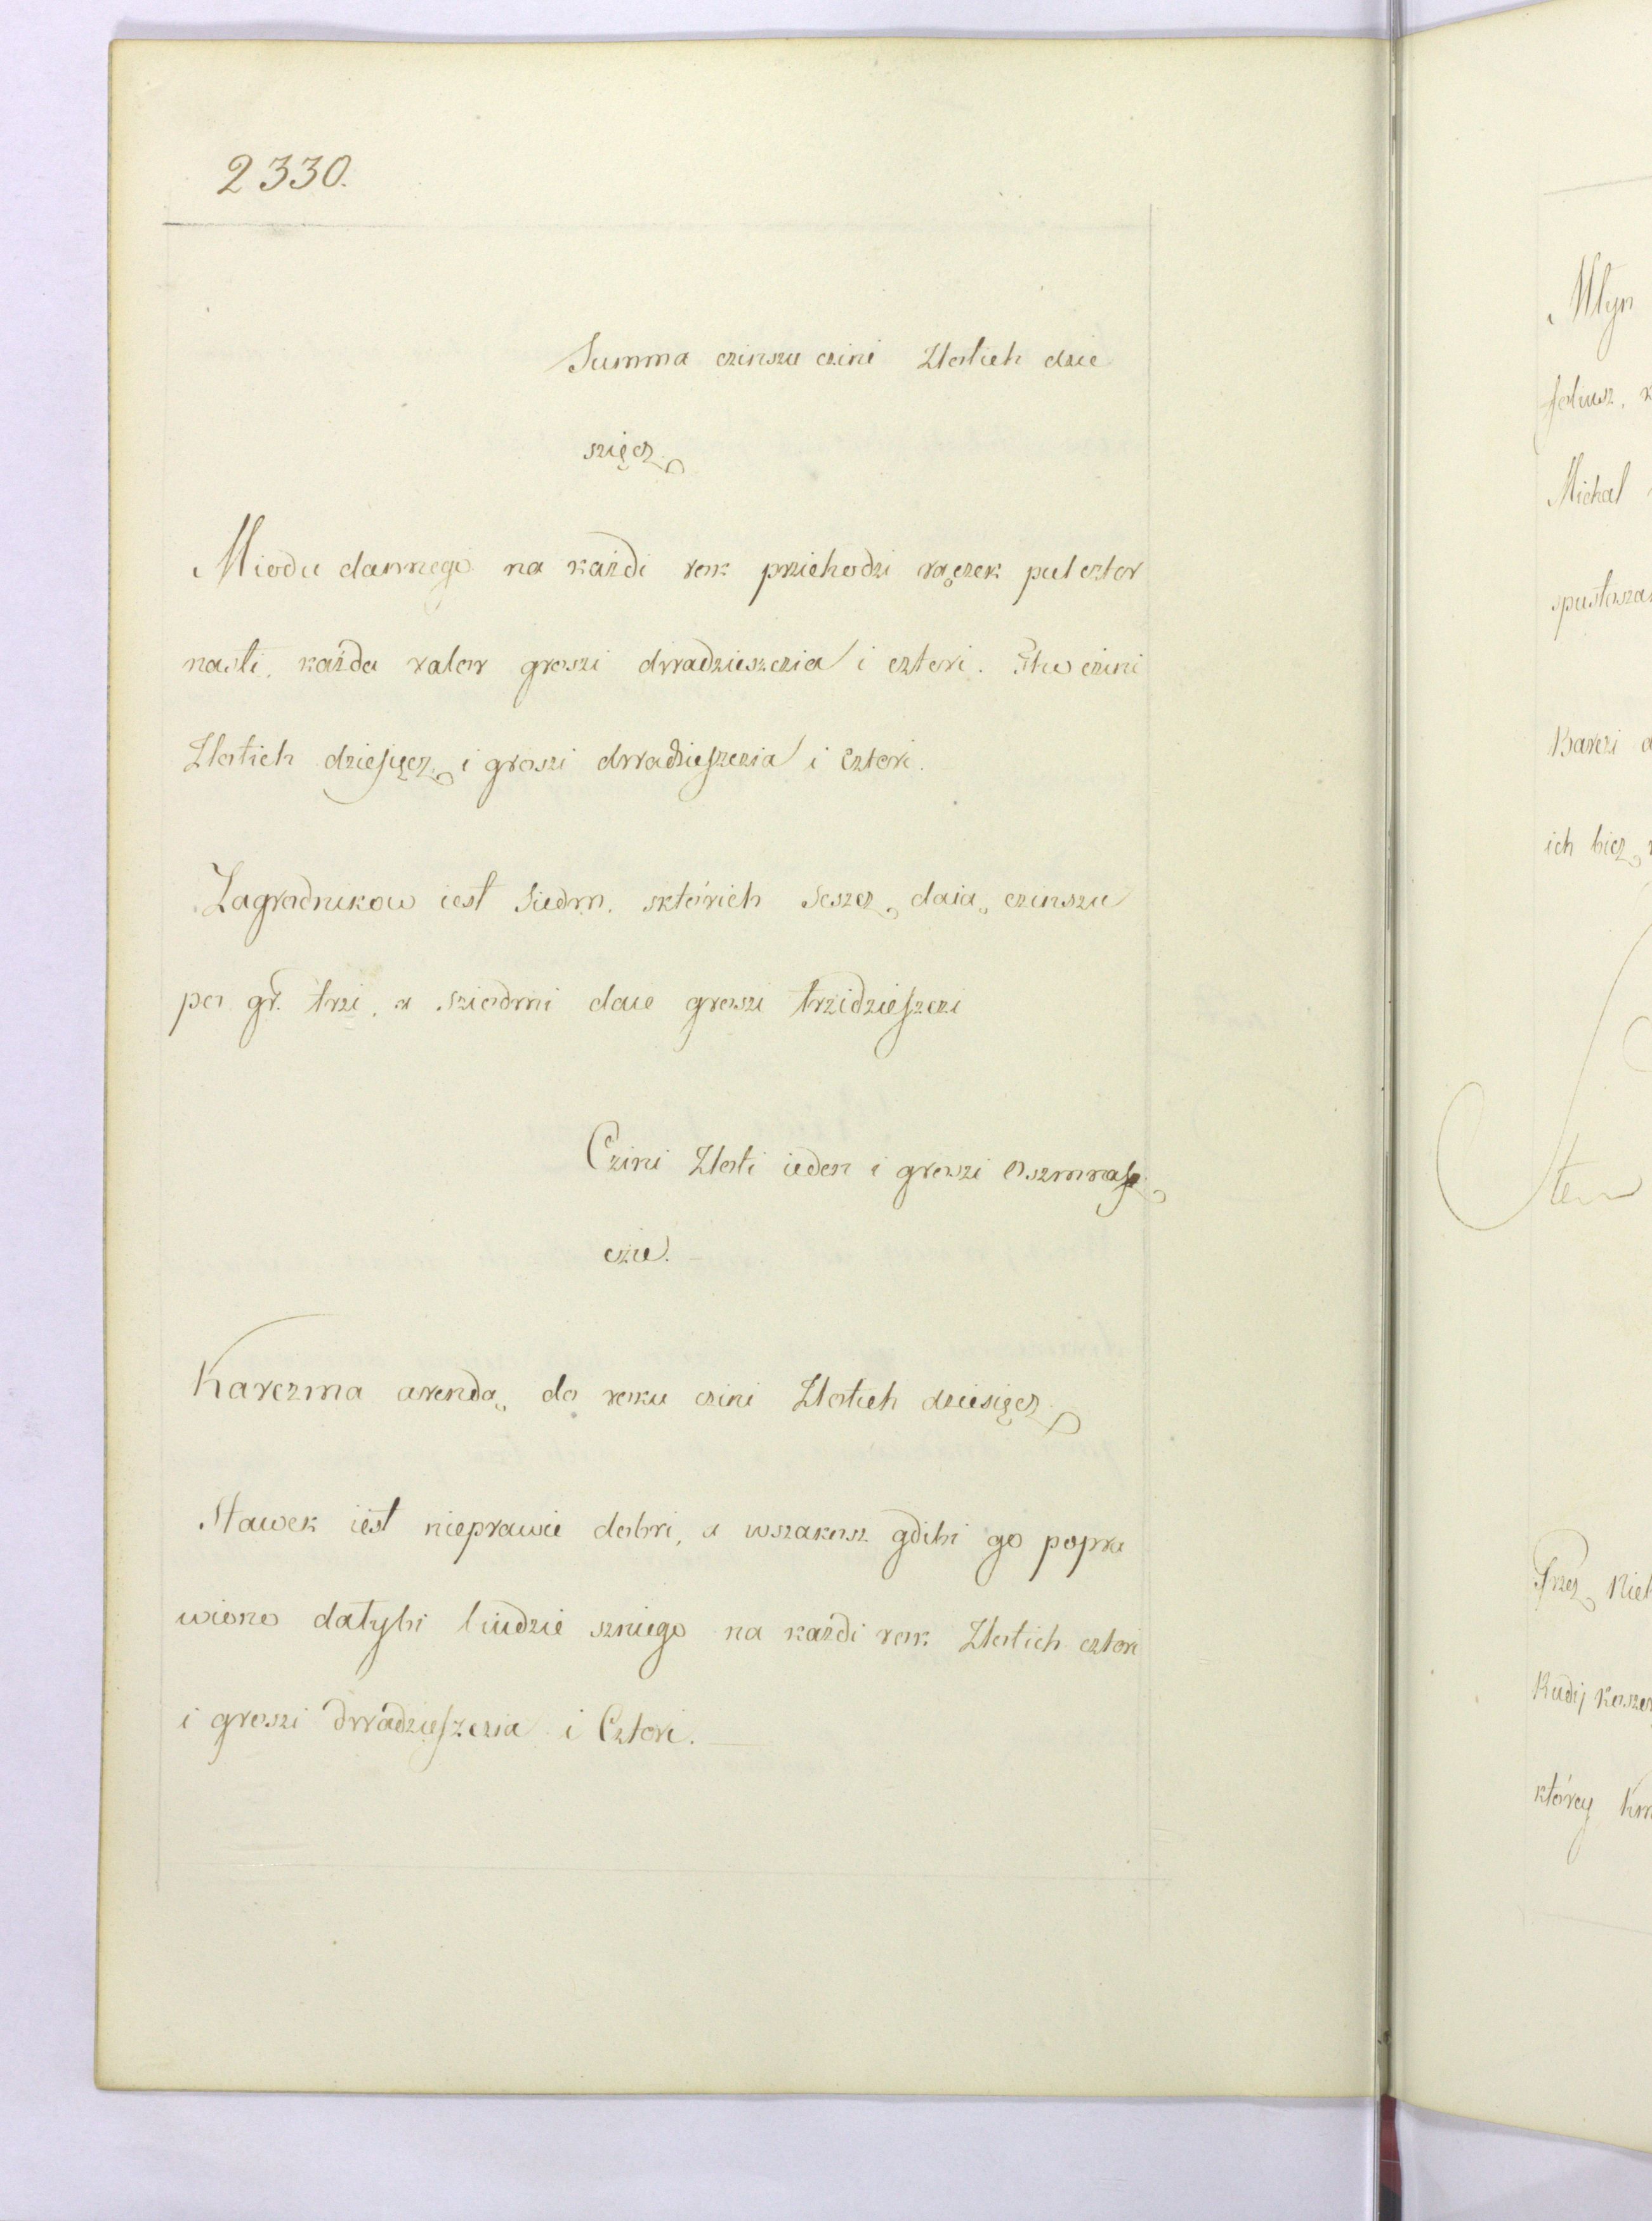 2330.
Summa czinszu czini Zlotich dzie
szięcz
Miodu dannego na każdi rok prziehodzi rączek pul cztor
nasti, każda valor groszi dwadzieszczia i cztori. Stu czini
Zlotich dziesięcz i groszi dwadzieszczia i Cztori.
Zagrodnikow iest Siedm, sktórich Seszcz daią czinszu
po gr. trzi, a sziodmi daie groszi trzidzieszczi
Czini Zloti ieden i groszi Oszmnasz
czie.
Karczma arendą do roku czini Zlotich dziesięcz
Stawek iest nieprawie dobri, a wszakosz gdibi go popra
wiono datybi liudzie szniego na każdi rok Zlotich cztori
i groszi dwadzieszczia i Cztori.
Młyn
Michal
Barczi
ich bicz
Przez
Rudij
którey